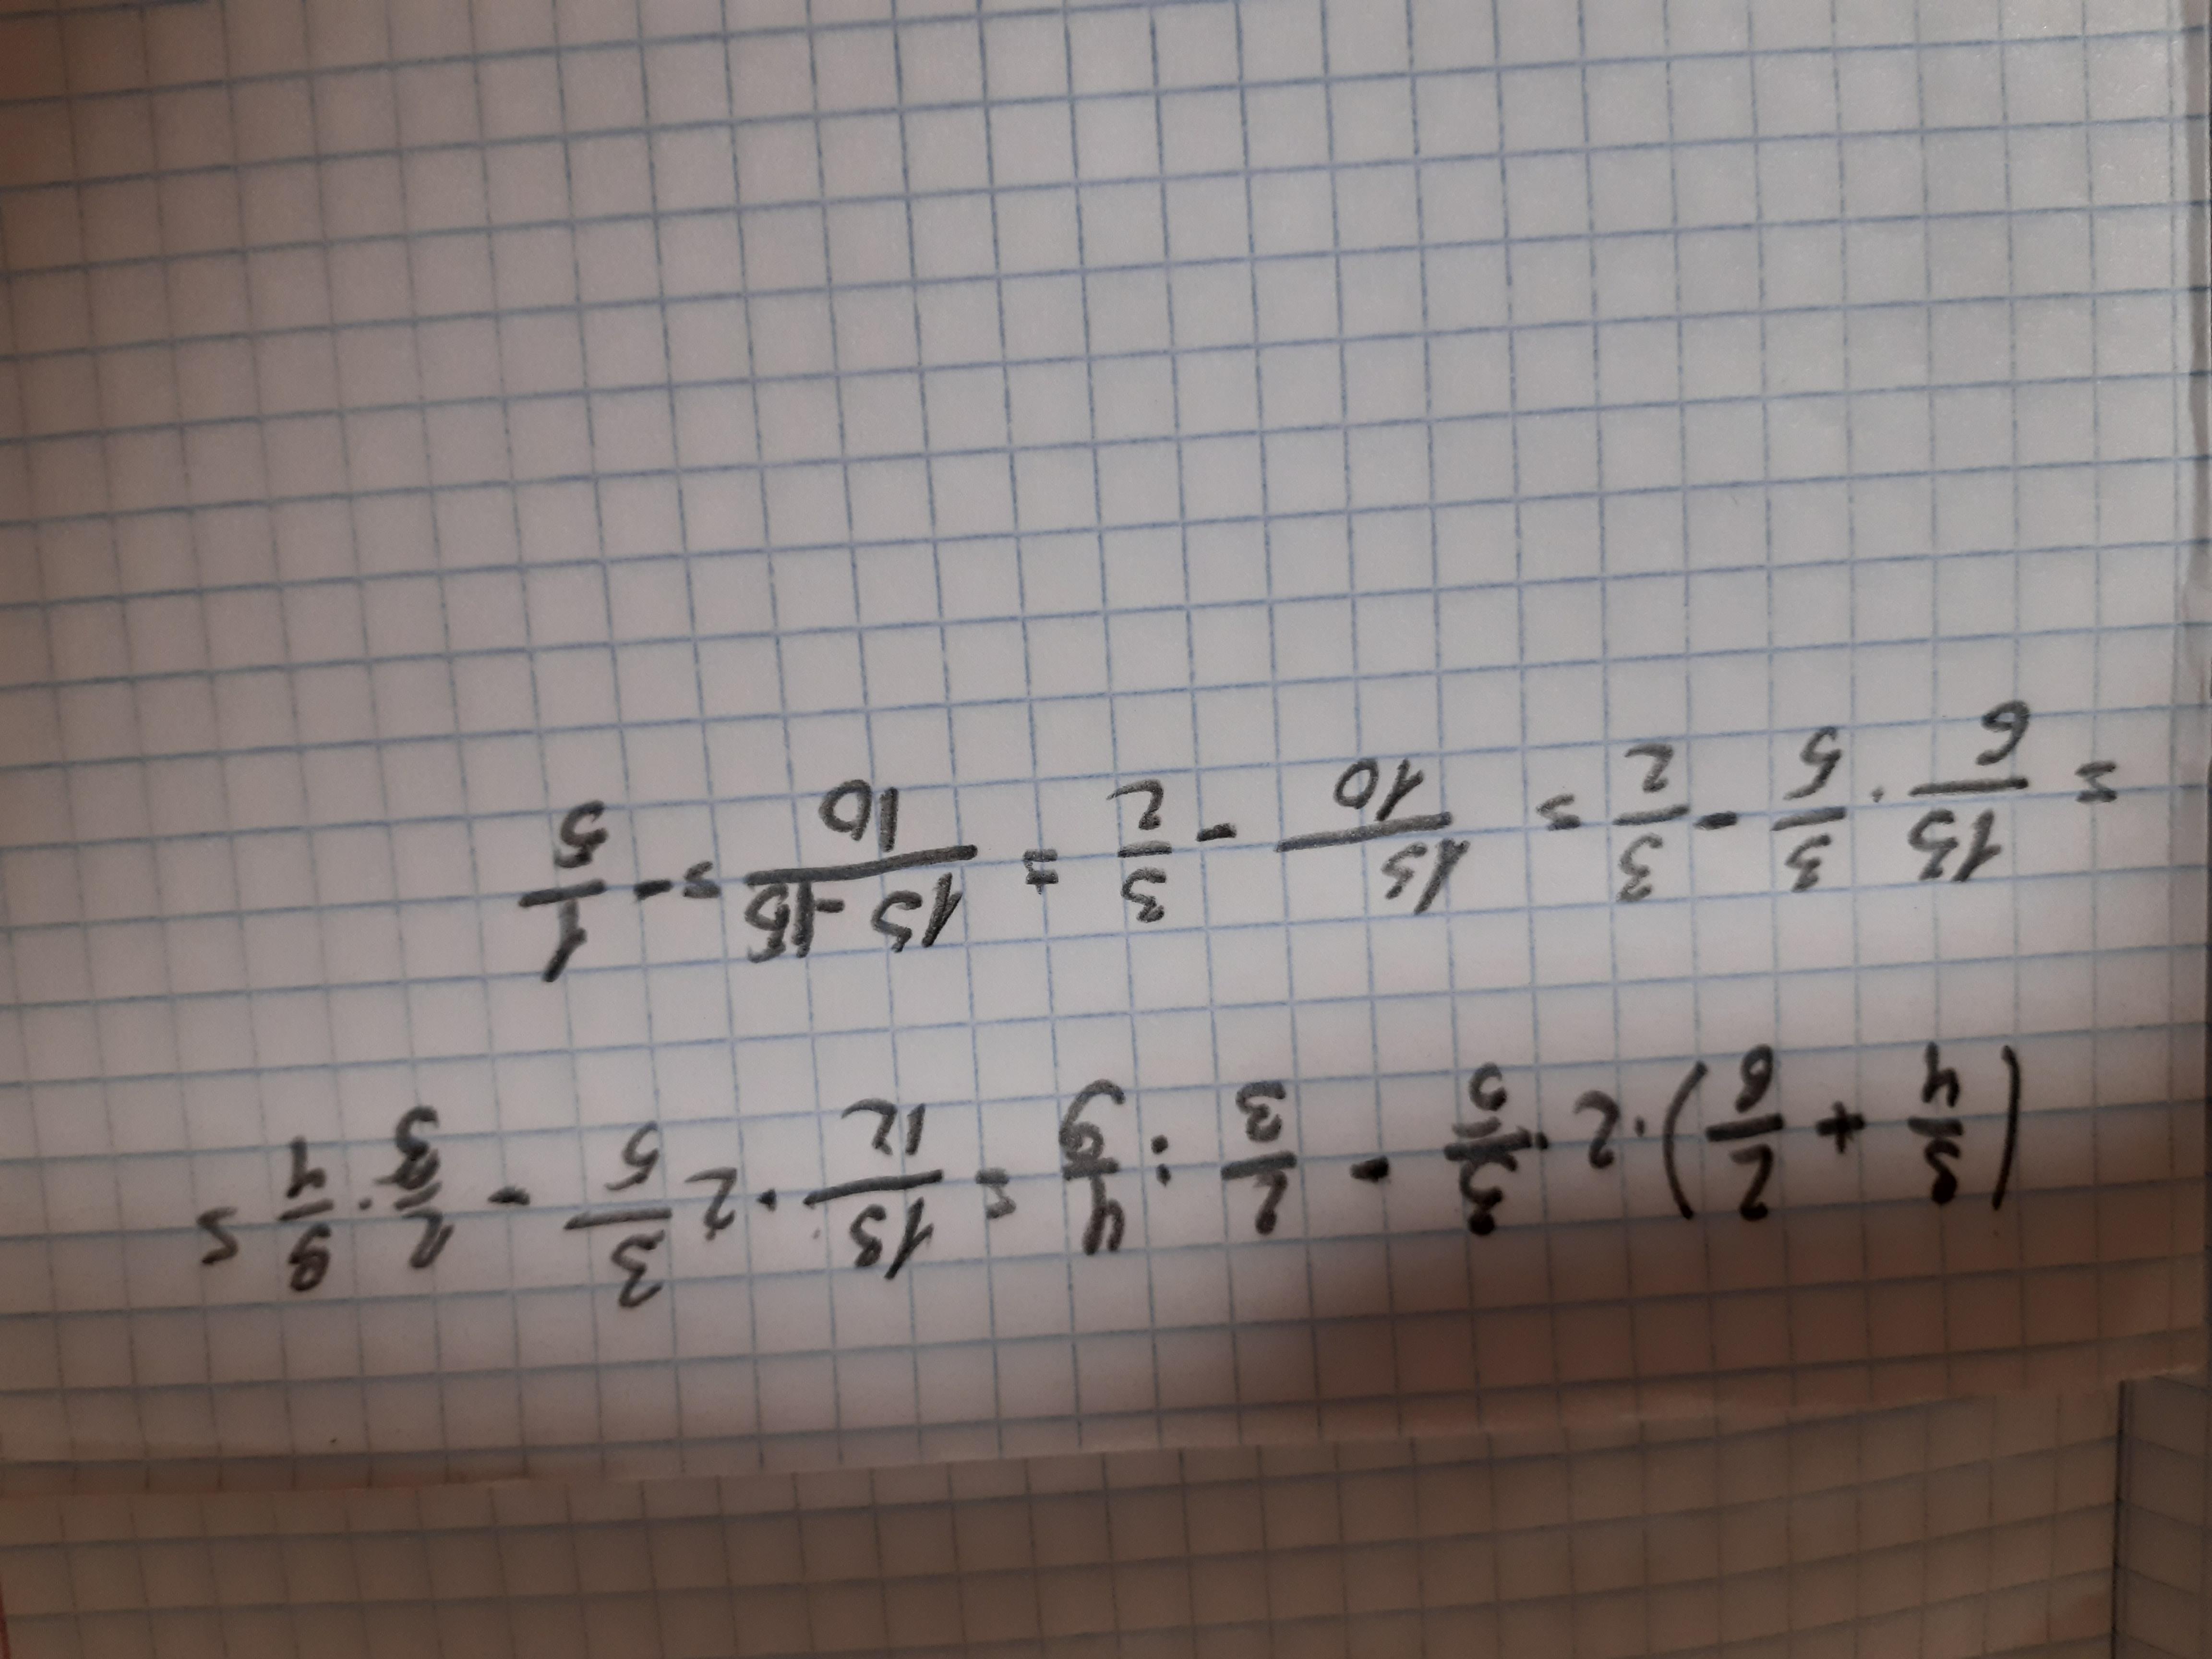 (3/4 + 2/6) · 2 · 3/5 - 2/3 : 4/9 = 13/12 · 2 3/5 - 2/3 · 9/4 =
= 13/6 · 3/5 - 3/2 = 13/10 - 3/2 = 13-15/10 = - 1/5